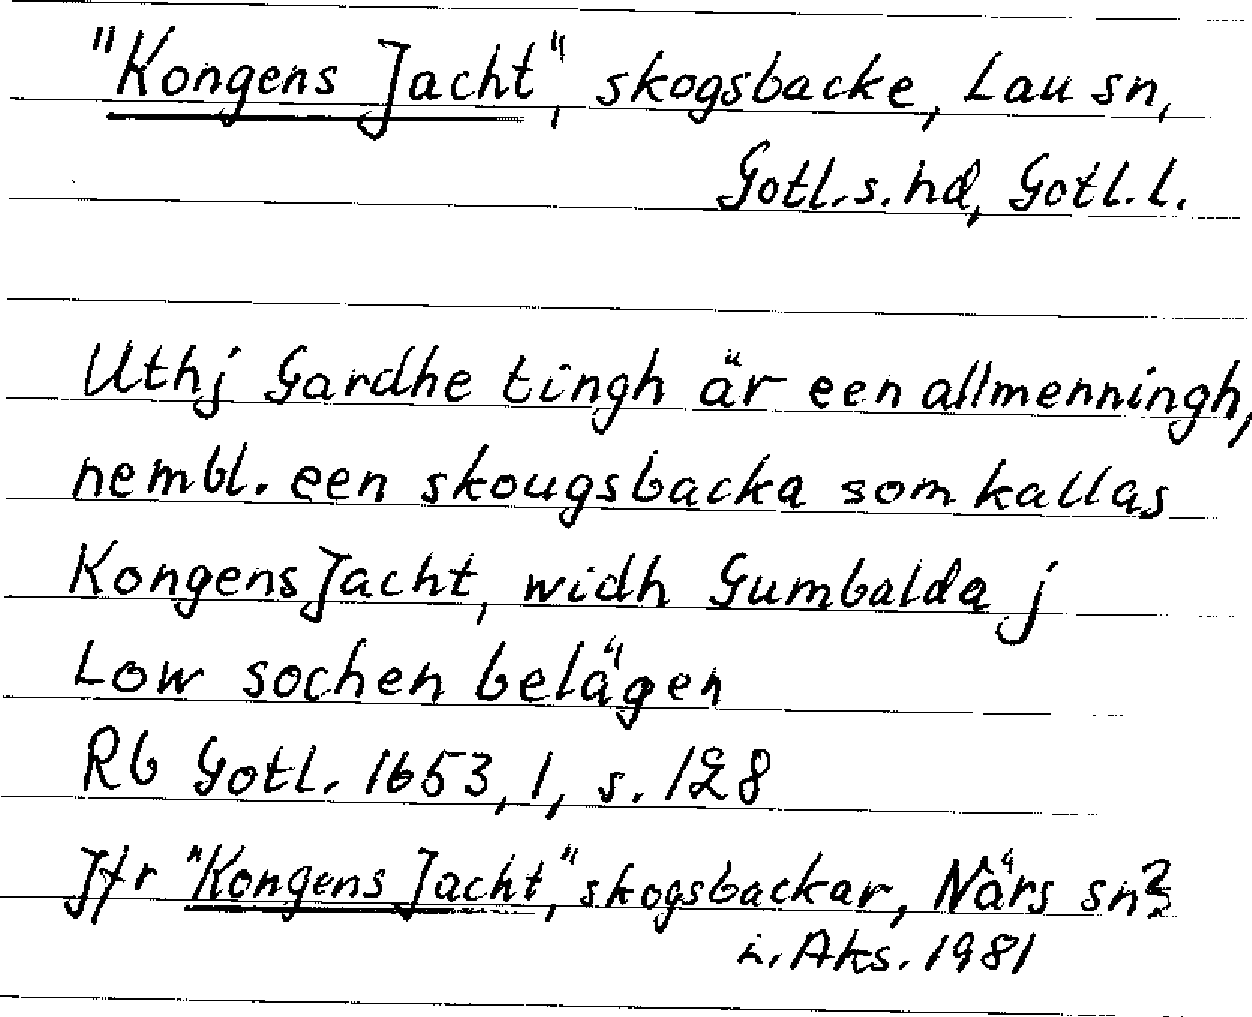 "Kongens Jacht", skogsbacke, Lau sn,
Gotl. s. hd, Gotl. l.
Uthj Gardhe tingh är een allmenningh,
nembl. een skougsbacka som kallas
Kongens Jacht, widh Gumbalda j
Low sochen belägen
Rb Gotl. 1653, 1, s. 128
Jfr "Kongens Jacht," skogsbackar, Närs sn?
Aks. 1981